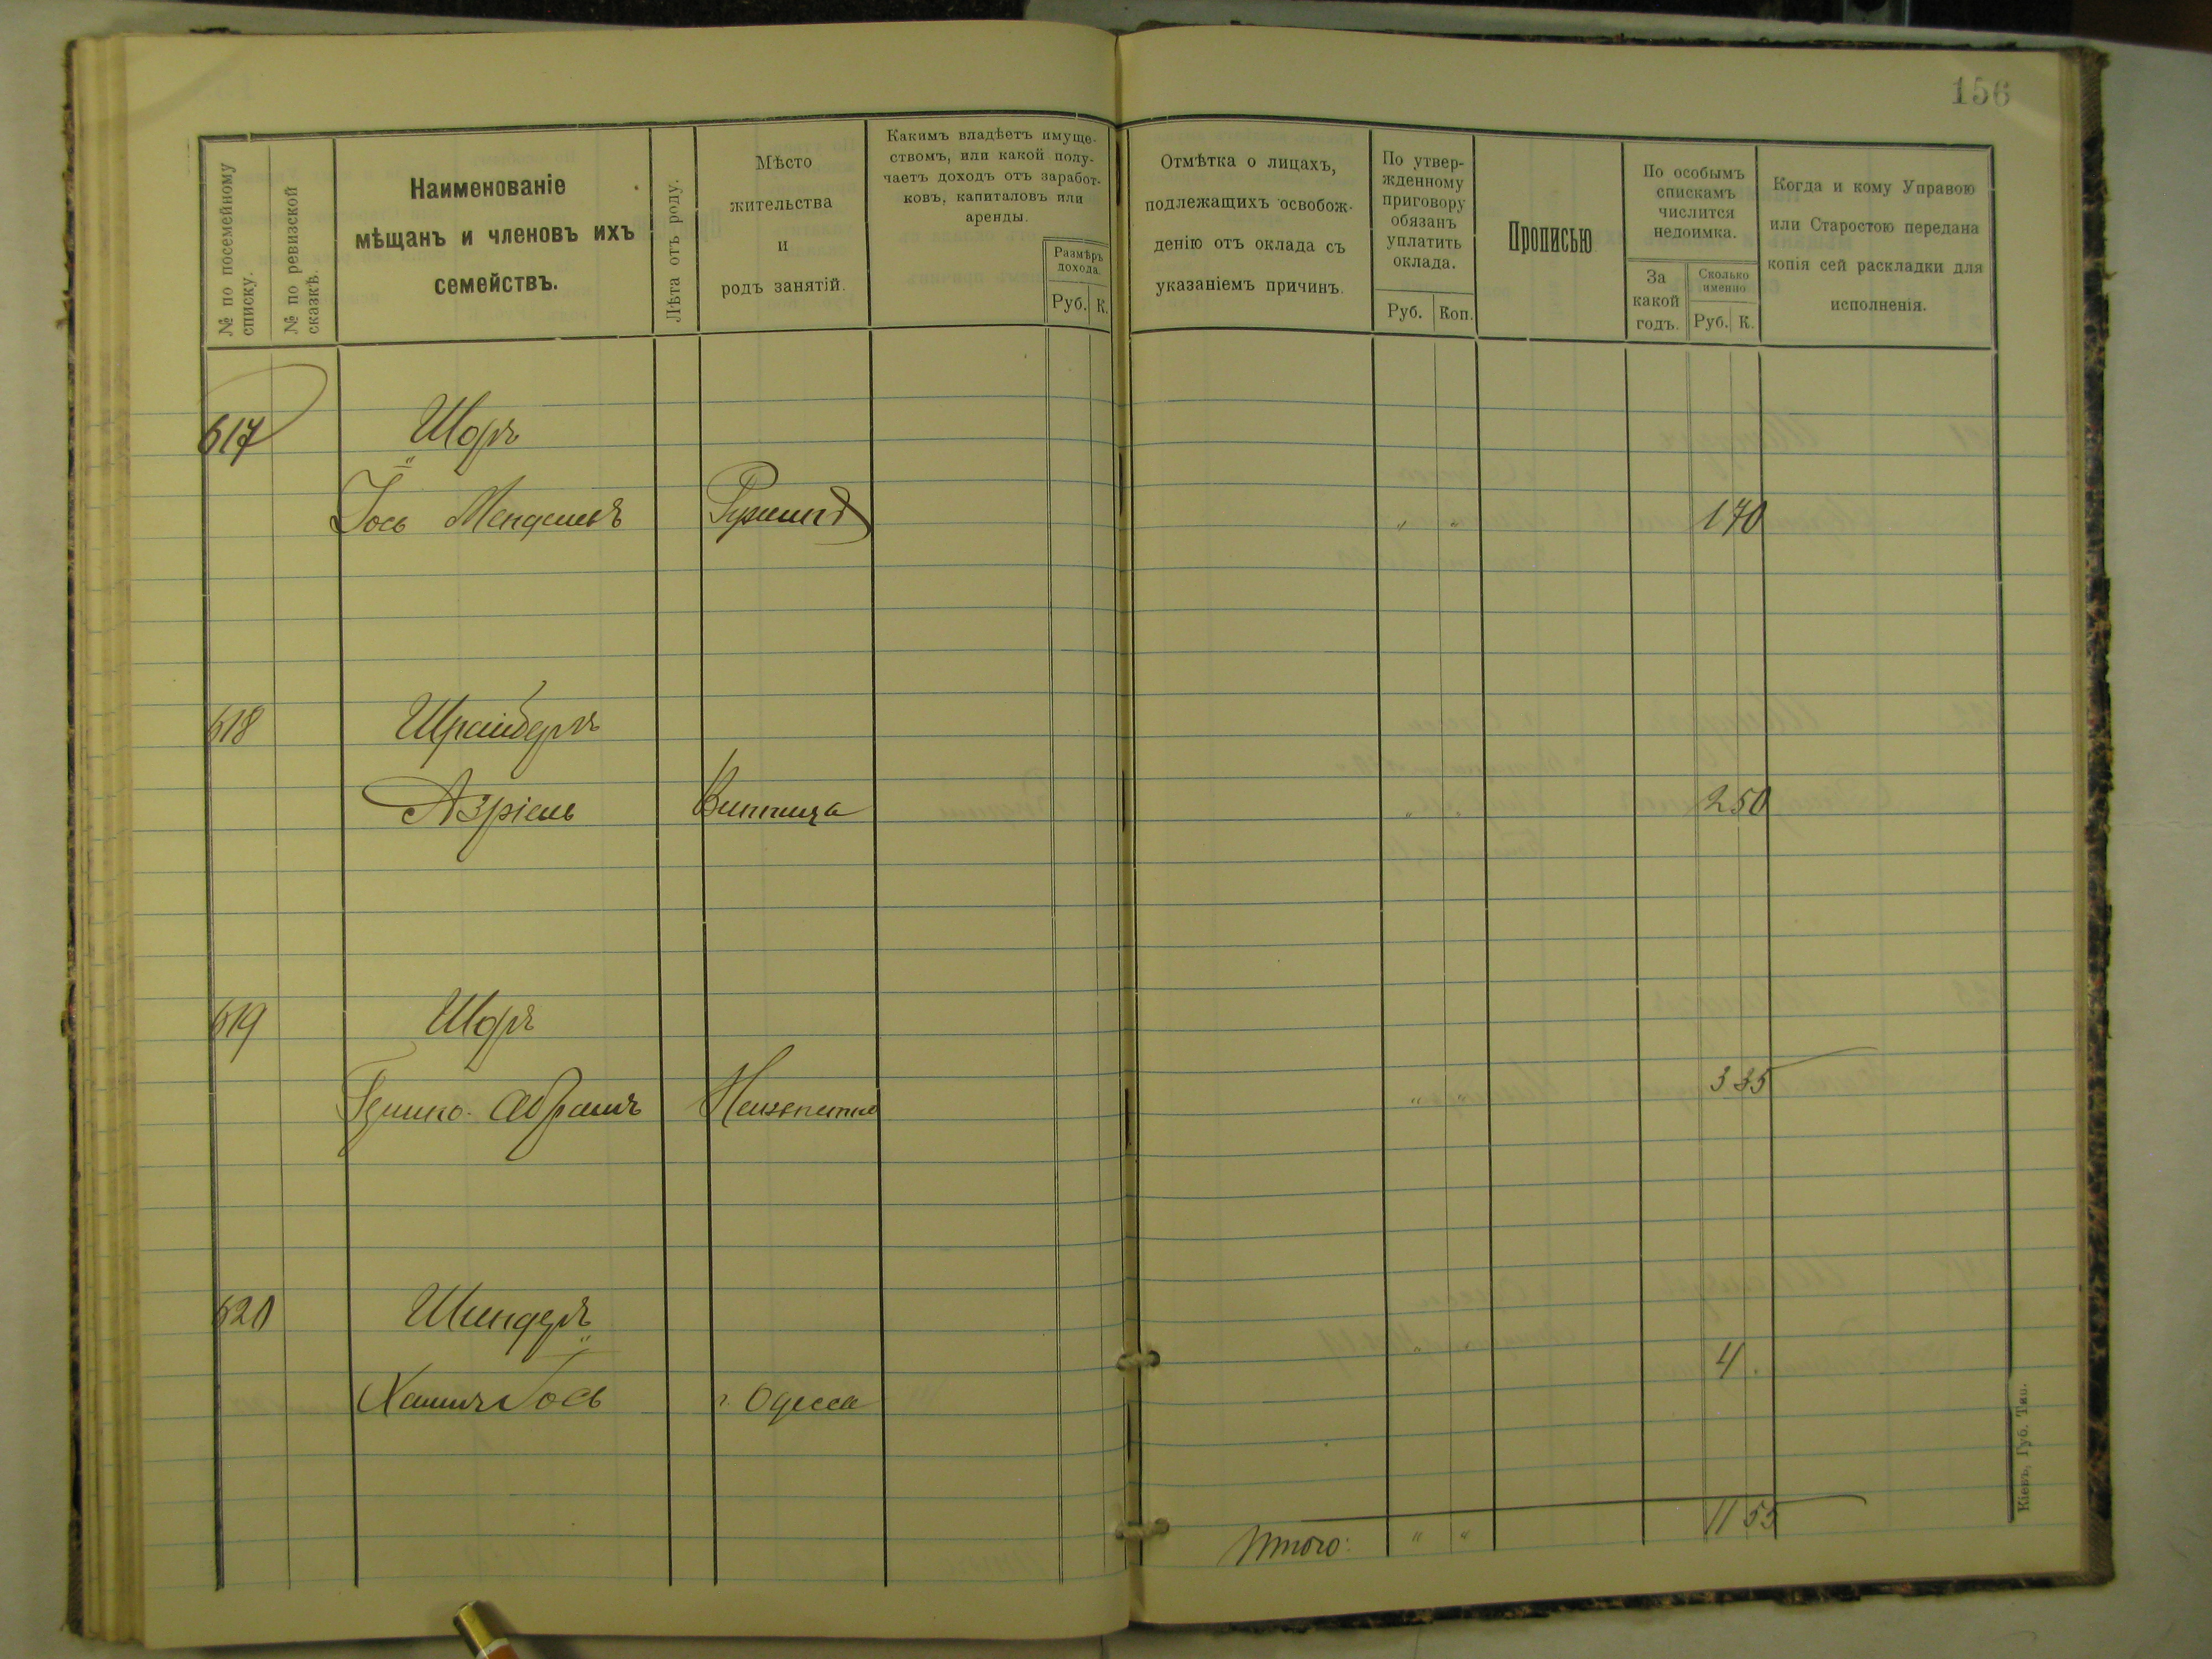 156
№ по посемейному списку.
№ по ревизской сказкѣ.
Наименованіе
мѣщанъ и членовъ ихъ
семействъ.
Лѣта отъ роду.
Мѣсто
жительства
и
родъ занятій.
Какимъ владѣетъ имуще-
ствомъ, или какой полу-
чаетъ доходъ отъ заработ-
ковъ, капиталовъ или
аренды.
Размѣръ
дохода.
Руб. К.
Отмѣтка о лицахъ,
подлежащихъ освобож-
денію отъ оклада съ
указаніемъ причинъ.
По утвер-
жденному
приговору
обязанъ
уплатить
оклада.
Руб. Коп.
Прописью
По особымъ
спискамъ
числится
недоимка.
За
какой
годъ.
Сколько
именно
Руб. К.
Когда и кому Управою
или Старостою передана
копія сей раскладки для
исполненія.
617 Шоръ
Іось Мендель Ружинъ " " 1 70
618 Шрайберъ
Азріель Винница " " 2 50
619 Шоръ
Абрамъ Неизвѣстно " " 3 35
620 Шиндеръ
Хаимъ Іось г. Одесса " " 4 .
Итого: " " 11 55
Кіевъ, Губ. Тип.